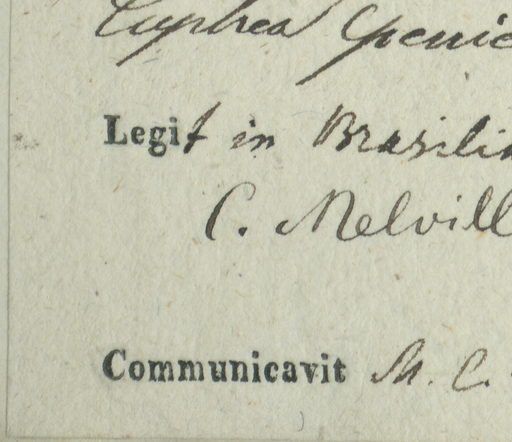 Cuphea
Legit in Brasilia
C. Melvill
Communicavit M. C.